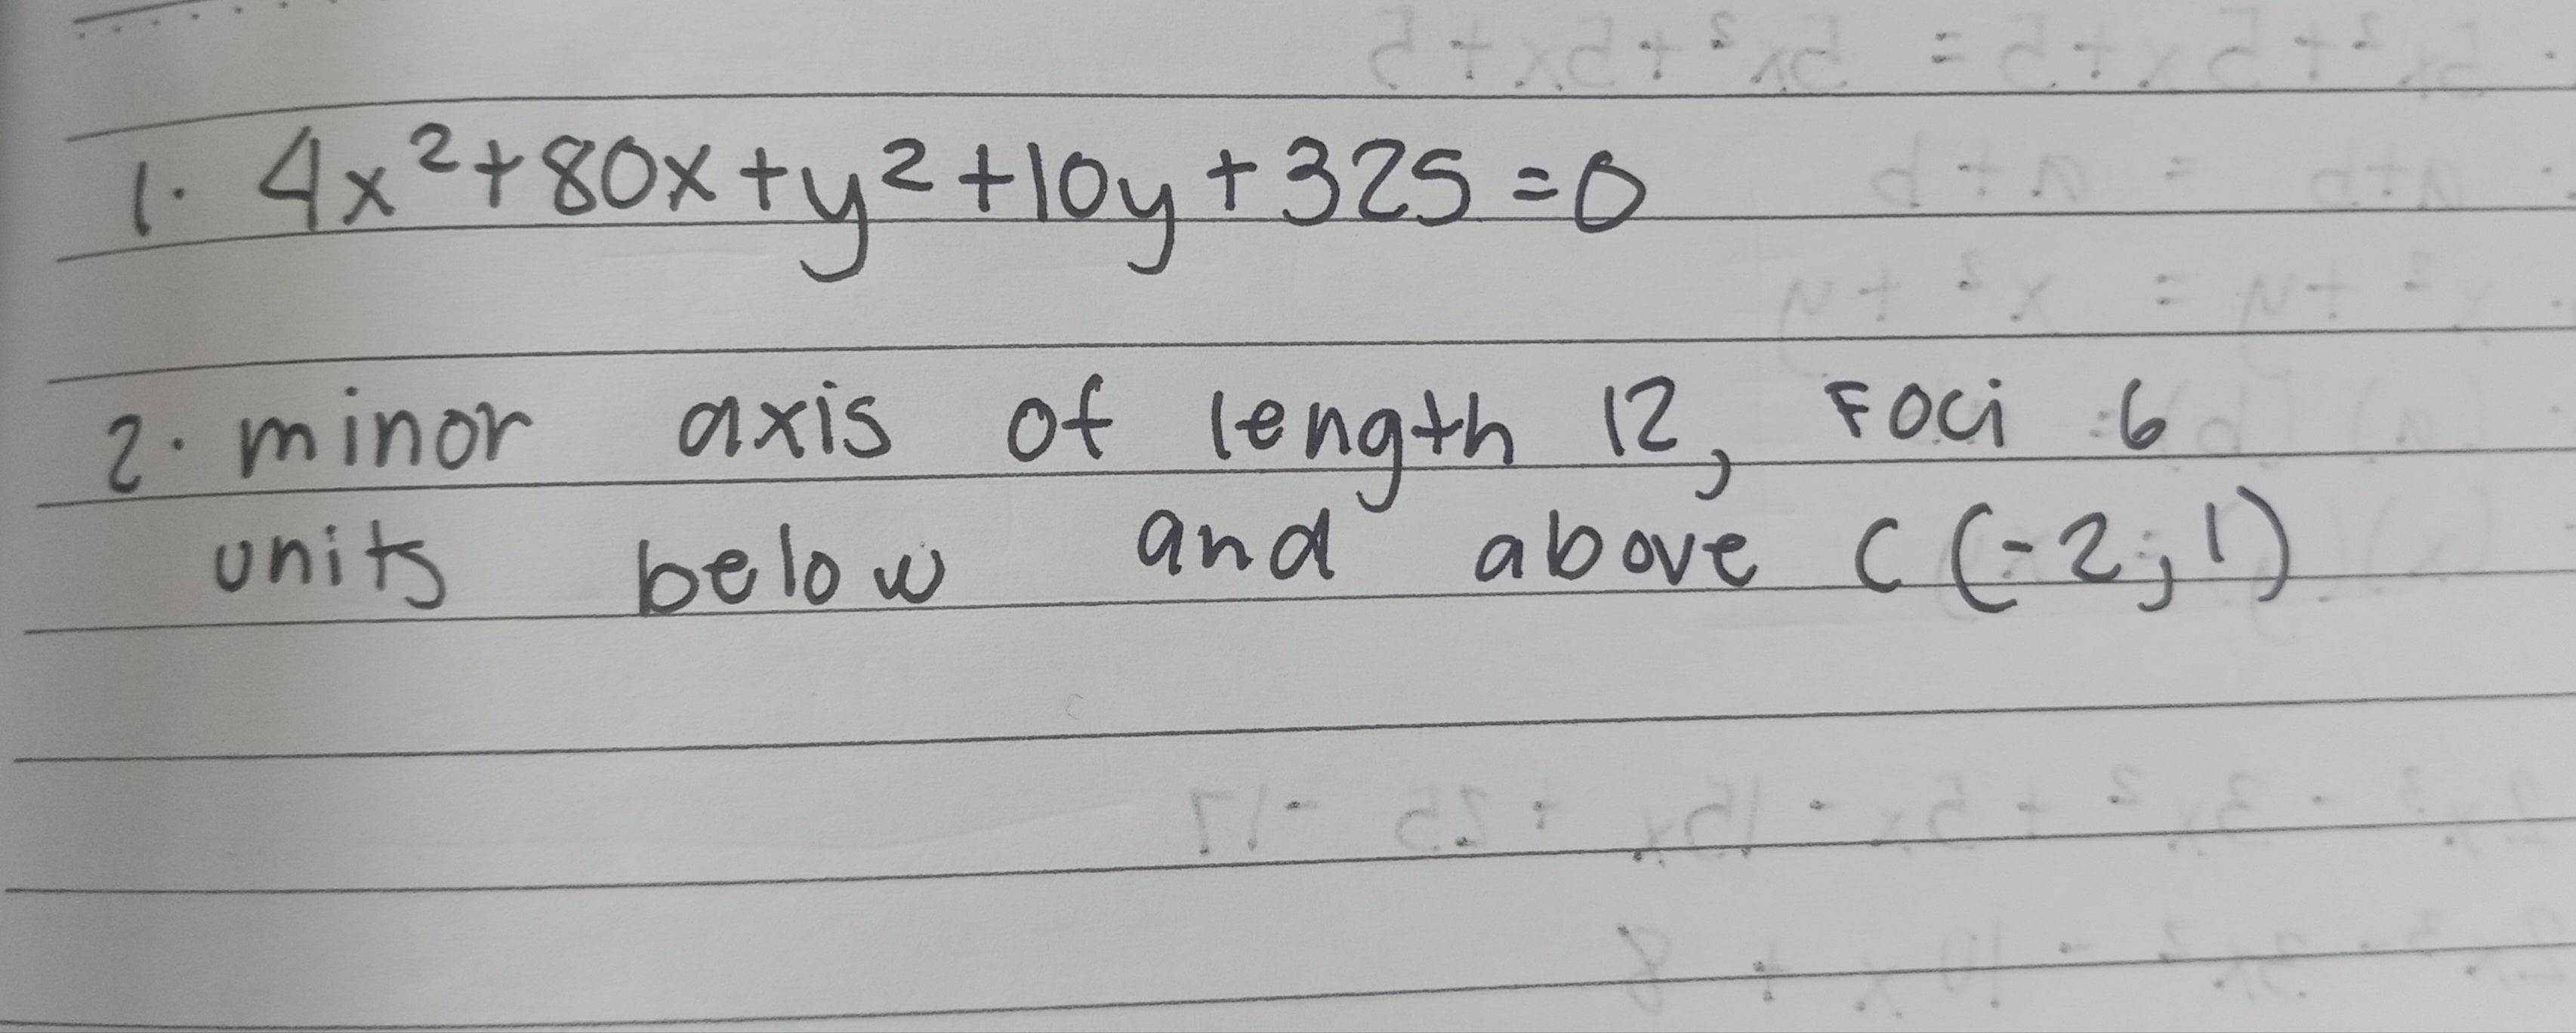 1. 4x²+80x+y²+10y+325=0
2. minor axis of length 12, Foci 6
units below and above C(-2,1)